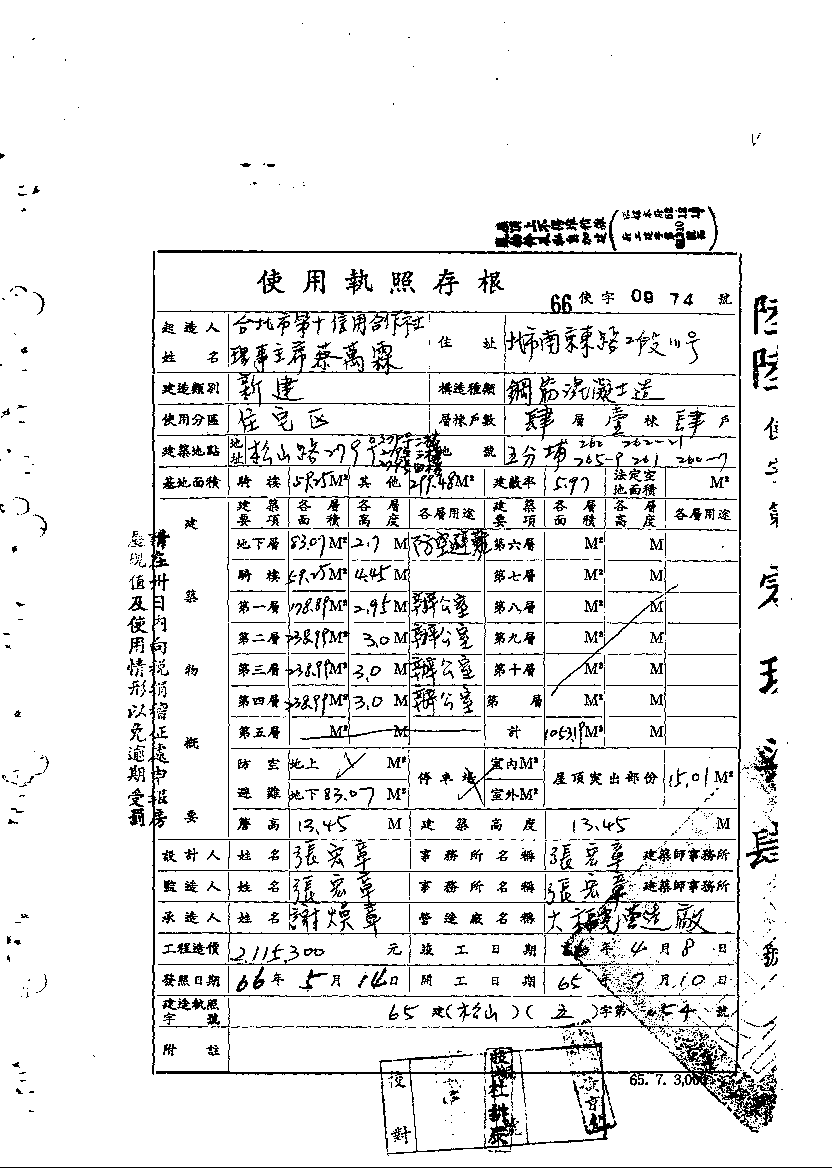 使用執照存根
66 使字 0974 號
起造人姓名 台北市第十信用合作社 理事主席蔡萬霖 住址
建造類別 新建 構造種類 鋼筋混凝土造
使用分區 住宅區 層棟戶數 肆層壹棟肆戶
建築地點 地址 松山路279 地號 五分埔
基地面積 騎樓 59.25M² 其他 299.48M² 建蔽率 5.97 法定空地面積 M²
建築物概要
建築要項 各層面積 各層高度 各層用途 建築要項 各層面積 各層高度 各層用途
地下層 83.07M² 2.7M 防空避難 第六層 M² M
騎樓 59.25M² 4.45M 第七層 M² M
第一層 178.89M² 2.95M 辦公室 第八層 M² M
第二層 238.99M² 3.0M 辦公室 第九層 M² M
第三層 238.99M² 3.0M 辦公室 第十層 M² M
第四層 238.99M² 3.0M 辦公室 第 層 M² M
第五層 M² M 計 M² M
防空避難 地上 M² 停車場 室內M² 屋頂突出部份 15.01M²
地下 83.07M² 室外M²
簷高 13.45 M 建築高度 13.45 M
設計人 姓名 張宏章 事務所名稱 張宏章 建築師事務所
監造人 姓名 張宏章 事務所名稱 張宏章 建築師事務所
承造人 姓名 謝燥章 營造廠名稱 營造廠
工程造價 2,115,300 元 竣工日期 66年4月8日
發照日期 66年5月14日 開工日期 65年9月10日
建造執照字號 65 建(松山)(五)字第 54 號
附註
65. 7. 3,000
校對
請在卅日內向稅捐稽征處申報房
屋現值及使用情形以免逾期受罰